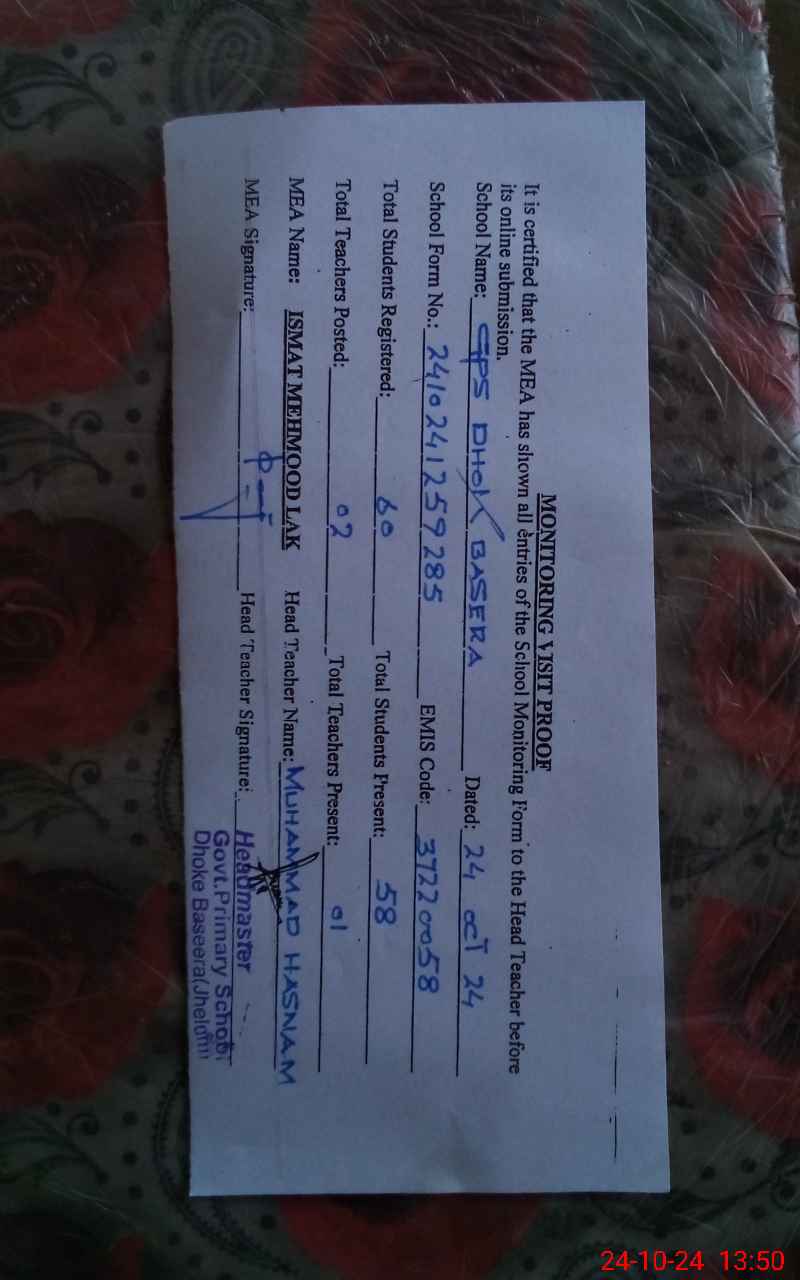 MONITORING VISIT PROOF
It is certified that the MEA has shown all entries of the School Monitoring Form to the Head Teacher before
its online submission.
School Name: GPS DHOK BASERA Dated: 24 OCT 24
School Form No.: 241024125 9285 EMIS Code: 37220058
Total Students Registered: 60 Total Students Present: 58
Total Teachers Posted: 02 Total Teachers Present: 01
MEA Name: ISMAT MEHMOOD LAK Head Teacher Name: MUHAMMAD HASNAM
MEA Signature: Head Teacher Signature:
Headmaster
Govt.Primary School
Dhoke Baseera(Jhelum)
24-10-24 13:50